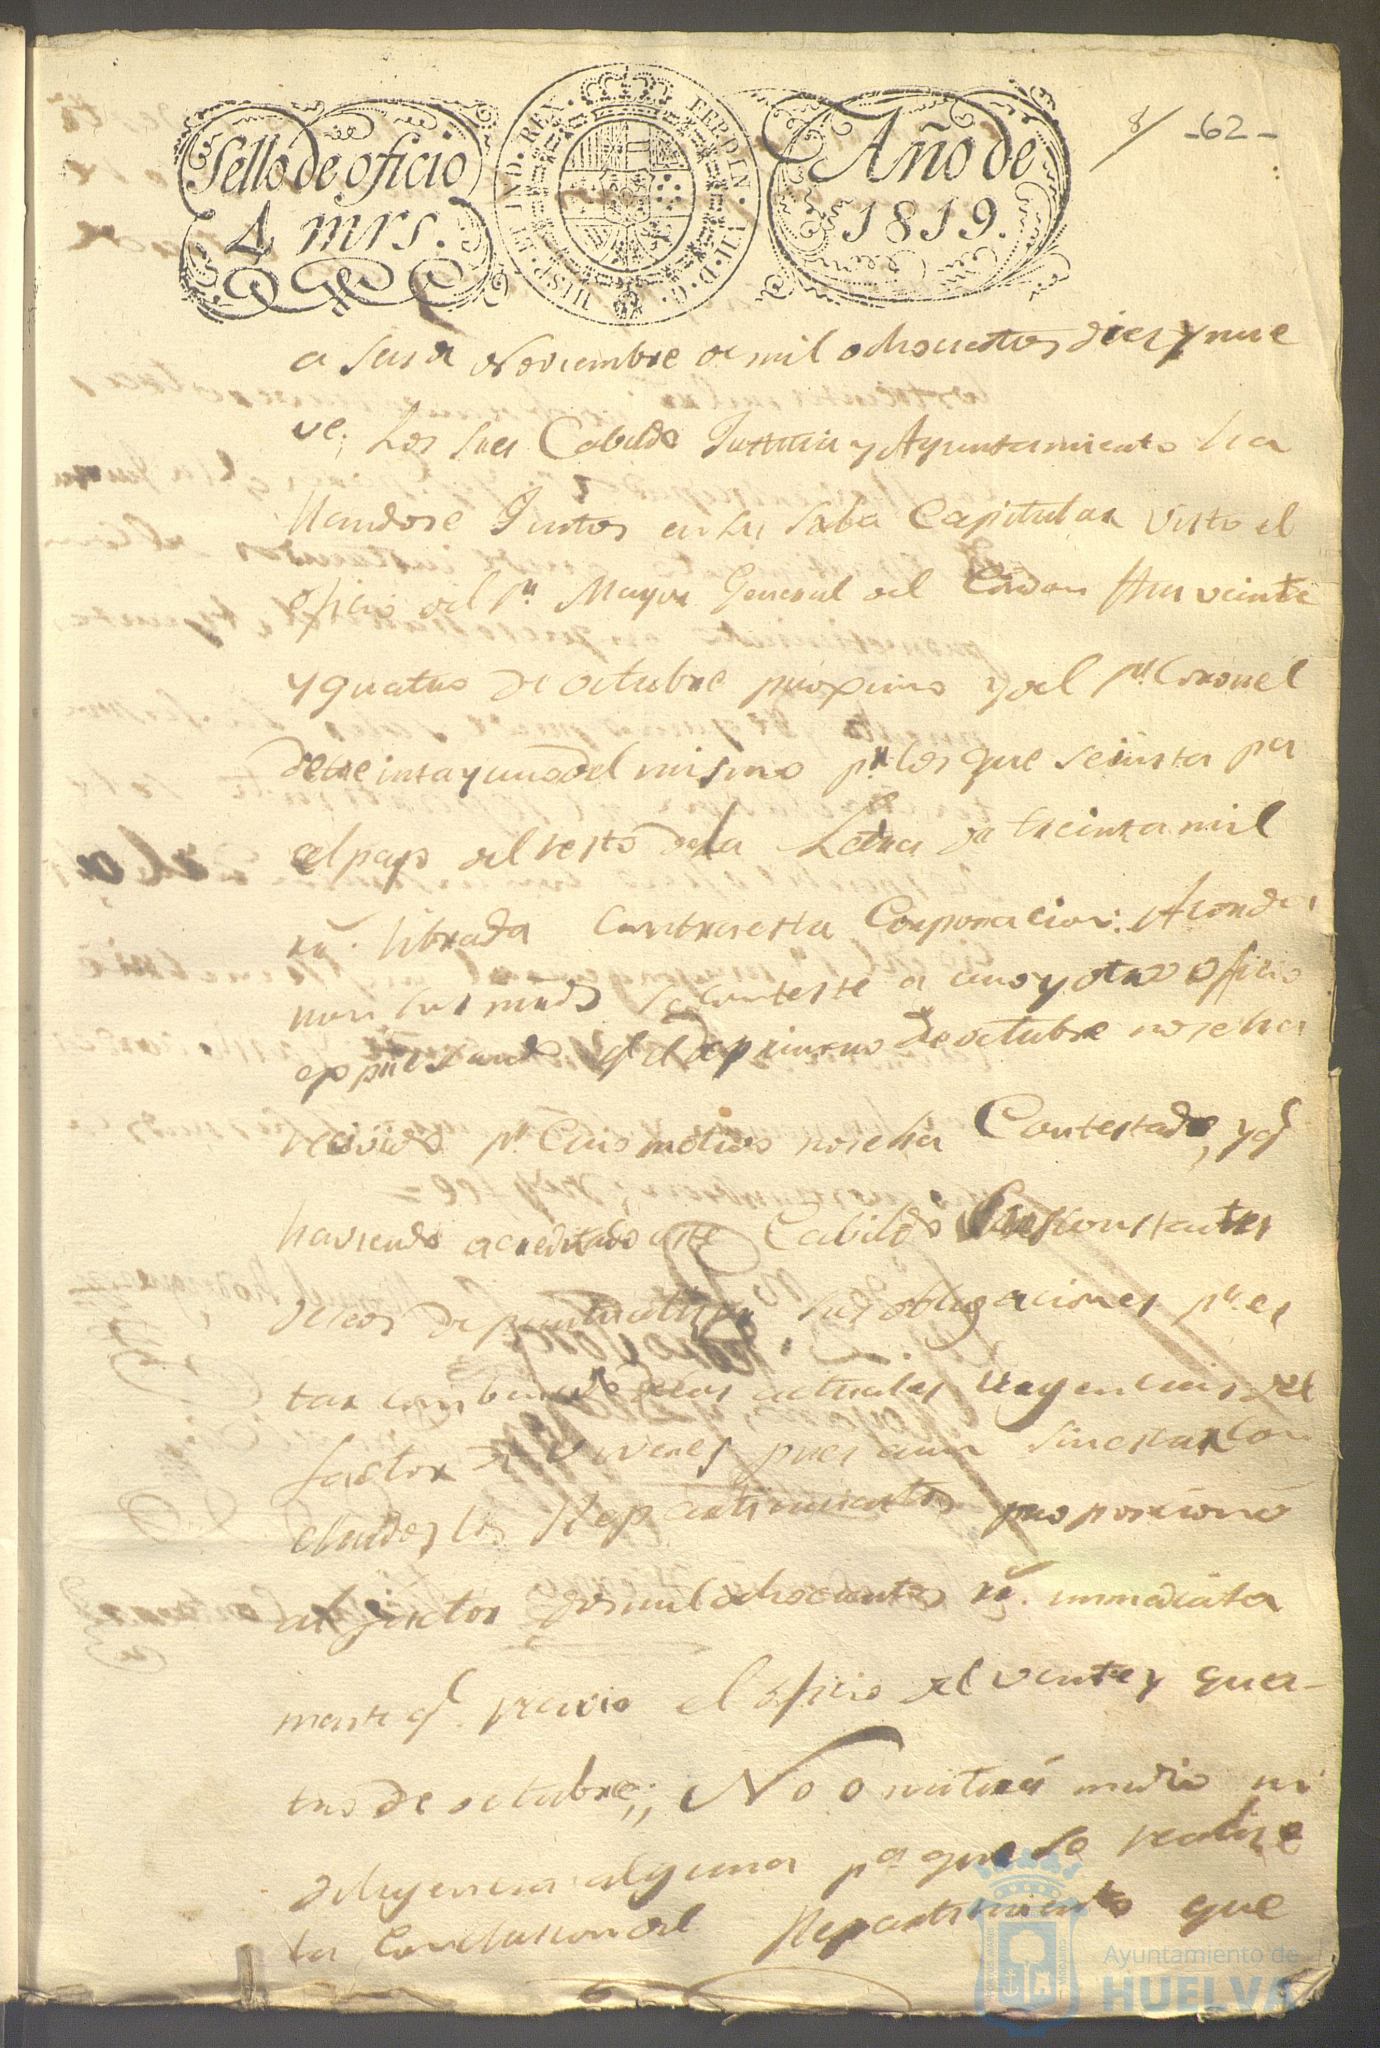 8/ -62-
Sello de oficio
4 mrs.
HISP. ET IND. REX. FERDIN. VII. D. G.
Año de
1819.
a seis de Noviembre de mil ochocientos diez y nue
ve; Los Sres Cabildo Justicia y Ayuntamiento ha
llandose Juntos en su Sala Capitular visto el
oficio del Sr. Mayor General del Cordon fha veinte
y quatro de octubre proximo y del Sr. Coronel
de treinta y uno del mismo pr. los que se insta por
el pago del resto de la Letra de treinta mil
rs. librada contra esta Corporacion: Acorda
ron sus mrds se conteste a uno y otro oficio
expresando qe el de primero de octubre no se ha
recivido pr. cuio motivo no se ha Contestado, y qe
haviendo acreditado este Cabildo sus constantes
deseos de puntualizar sus obligaciones pr. es
tar combencido de las actuales urgencias del
factor de viveres pues aun sin estar con
cluidos los Repartimientos proporcionó
al factor dos mil ochocientos rs. immediata
mente qe. recivio el oficio del veinte y qua-
tro de octubre; No omitirá medio ni
diligencia alguna pa que se realise
la Conclusion del Repartimiento que
Ayuntamiento de
HUELVA